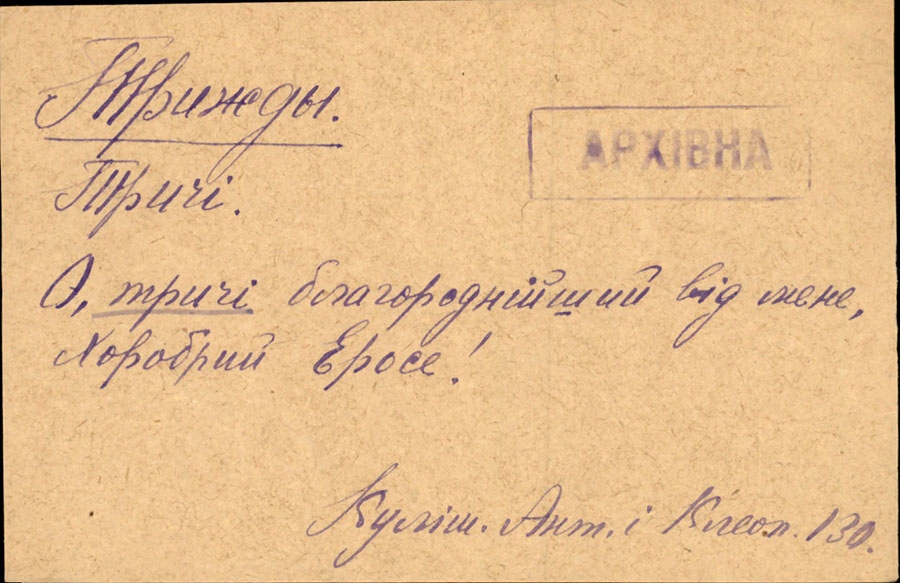 Трижды.
АРХІВНА
Тричі.
О, тричі благороднійший від мене,
Хоробрий Еросе!
Куліш. Ант. і Клеоп. 130.